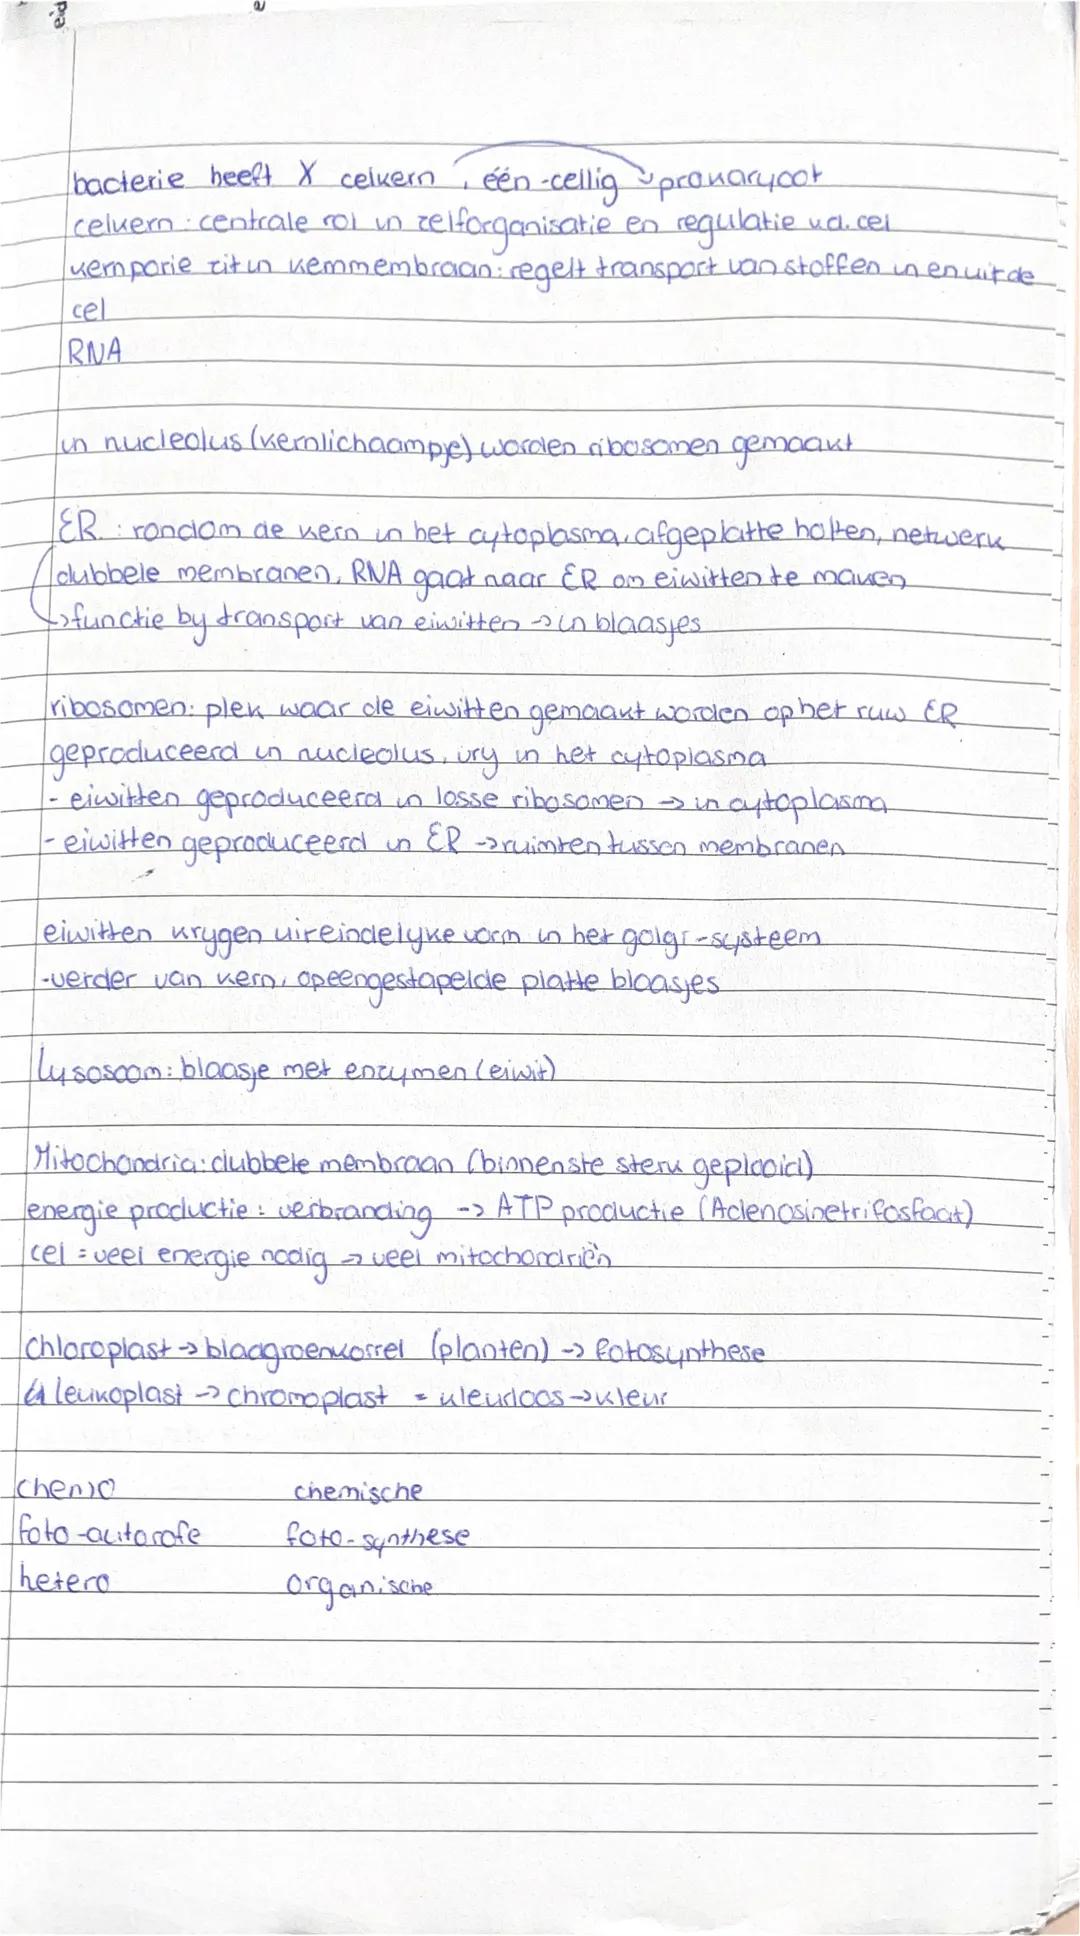 bacterie heeft X celkern, één-cellig → prokaryoot
celkern: centrale rol in zelforganisatie en regulatie v.d. cel
kernporie zit in kernmembraan: regelt transport van stoffen in en uit de
cel
RNA
in nucleolus (kernlichaampje) worden ribosomen gemaakt
ER: rondom de kern in het cytoplasma, afgeplatte holten, netwerk
dubbele membranen, RNA gaat naar ER om eiwitten te maken
→ functie by transport van eiwitten → in blaasjes
ribosomen: plek waar de eiwitten gemaakt worden op het ruw ER
geproduceerd in nucleolus, vry in het cytoplasma
- eiwitten geproduceerd in losse ribosomen → in cytoplasma
- eiwitten geproduceerd in ER → ruimten tussen membranen
eiwitten krygen uiteindelyke vorm in het golgi-systeem
- verder van kern, opeengestapelde platte blaasjes
lysosoom: blaasje met enzymen (eiwit)
Mitochondria: dubbele membraan (binnenste sterk geplooid)
energie productie: verbranding -> ATP productie (Adenosinetrifosfaat)
cel = veel energie nodig → veel mitochondriën
Chloroplast → bladgroenkorrel (planten) -> fotosynthese
↳ leukoplast -> chromoplast = kleurloos → kleur
chemo chemische
foto-autotrofe foto-synthese
hetero organische